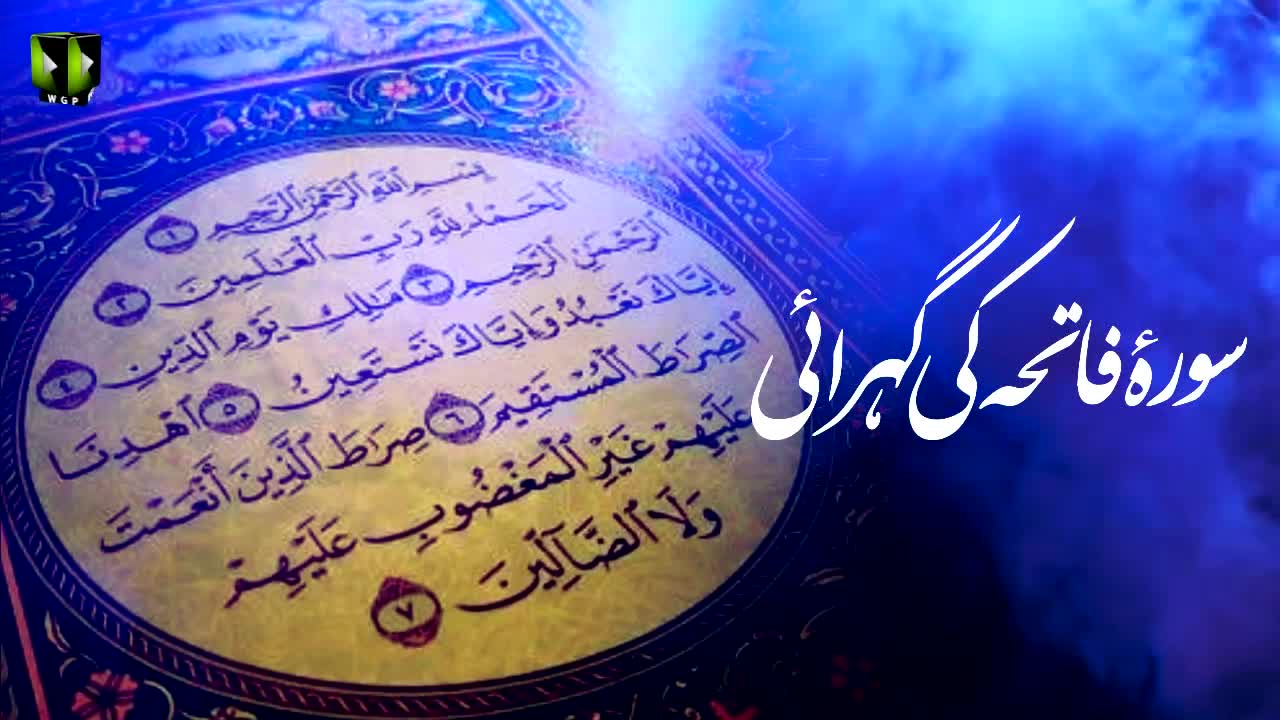 WGP
بِسْمِ ٱللَّهِ ٱلرَّحْمَٰنِ ٱلرَّحِيمِ ١
ٱلْحَمْدُ لِلَّهِ رَبِّ ٱلْعَٰلَمِينَ ٢
ٱلرَّحْمَٰنِ ٱلرَّحِيمِ ٣ مَٰلِكِ يَوْمِ ٱلدِّينِ ٤
إِيَّاكَ نَعْبُدُ وَإِيَّاكَ نَسْتَعِينُ ٥ ٱهْدِنَا
ٱلصِّرَٰطَ ٱلْمُسْتَقِيمَ ٦ صِرَٰطَ ٱلَّذِينَ أَنْعَمْتَ
عَلَيْهِمْ غَيْرِ ٱلْمَغْضُوبِ عَلَيْهِمْ
وَلَا ٱلضَّآلِّينَ ٧
سورۂ فاتحہ کی گہرائی